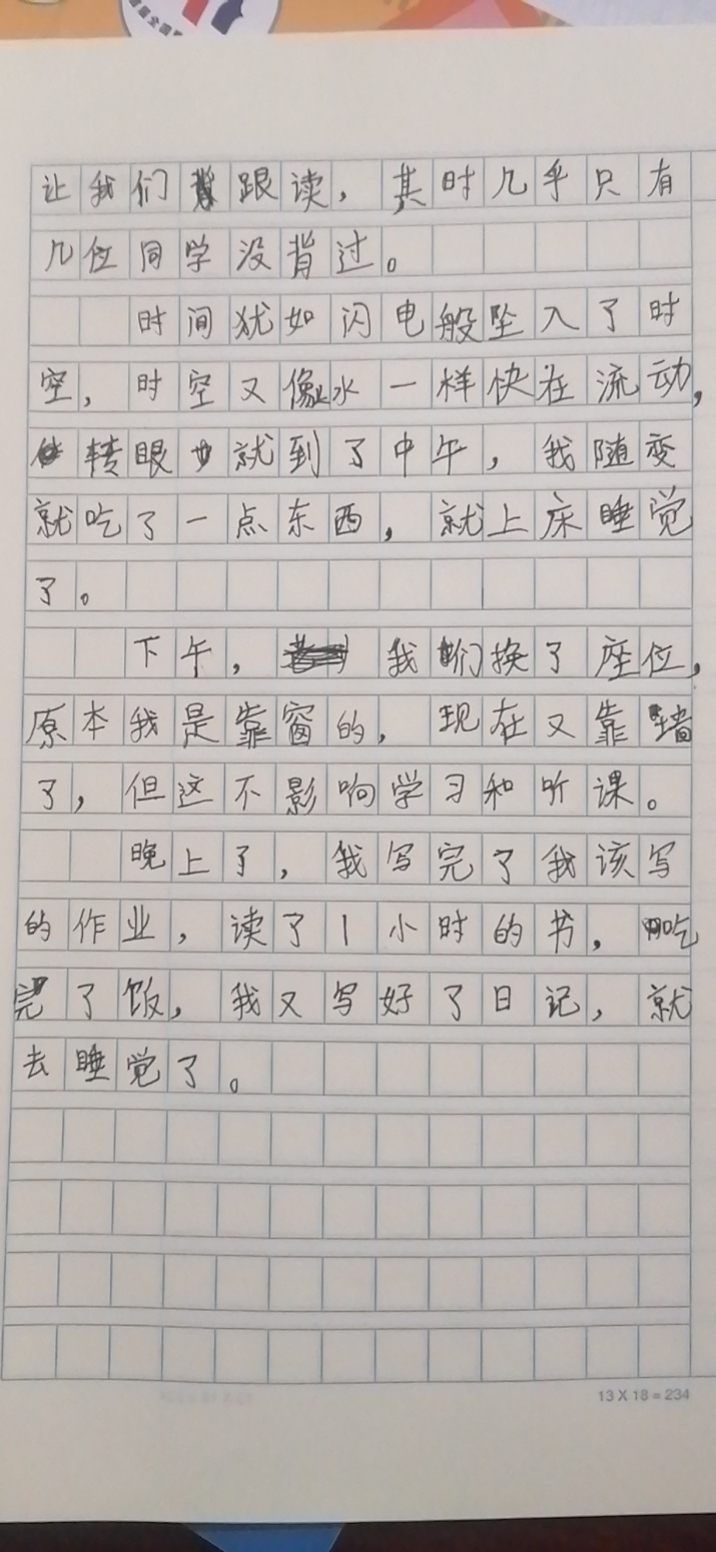 让我们跟读，其时几乎只有
几位同学没背过。
时间犹如闪电般坠入了时
空，时空又像水一样快在流动，
转眼就到了中午，我随变
就吃了一点东西，就上床睡觉
了。
下午，我们换了座位，
原本我是靠窗的，现在又靠墙
了，但这不影响学习和听课。
晚上了，我写完了我该写
的作业，读了1小时的书，吃
完了饭，我又写好了日记，就
去睡觉了。
13 X 18 = 234